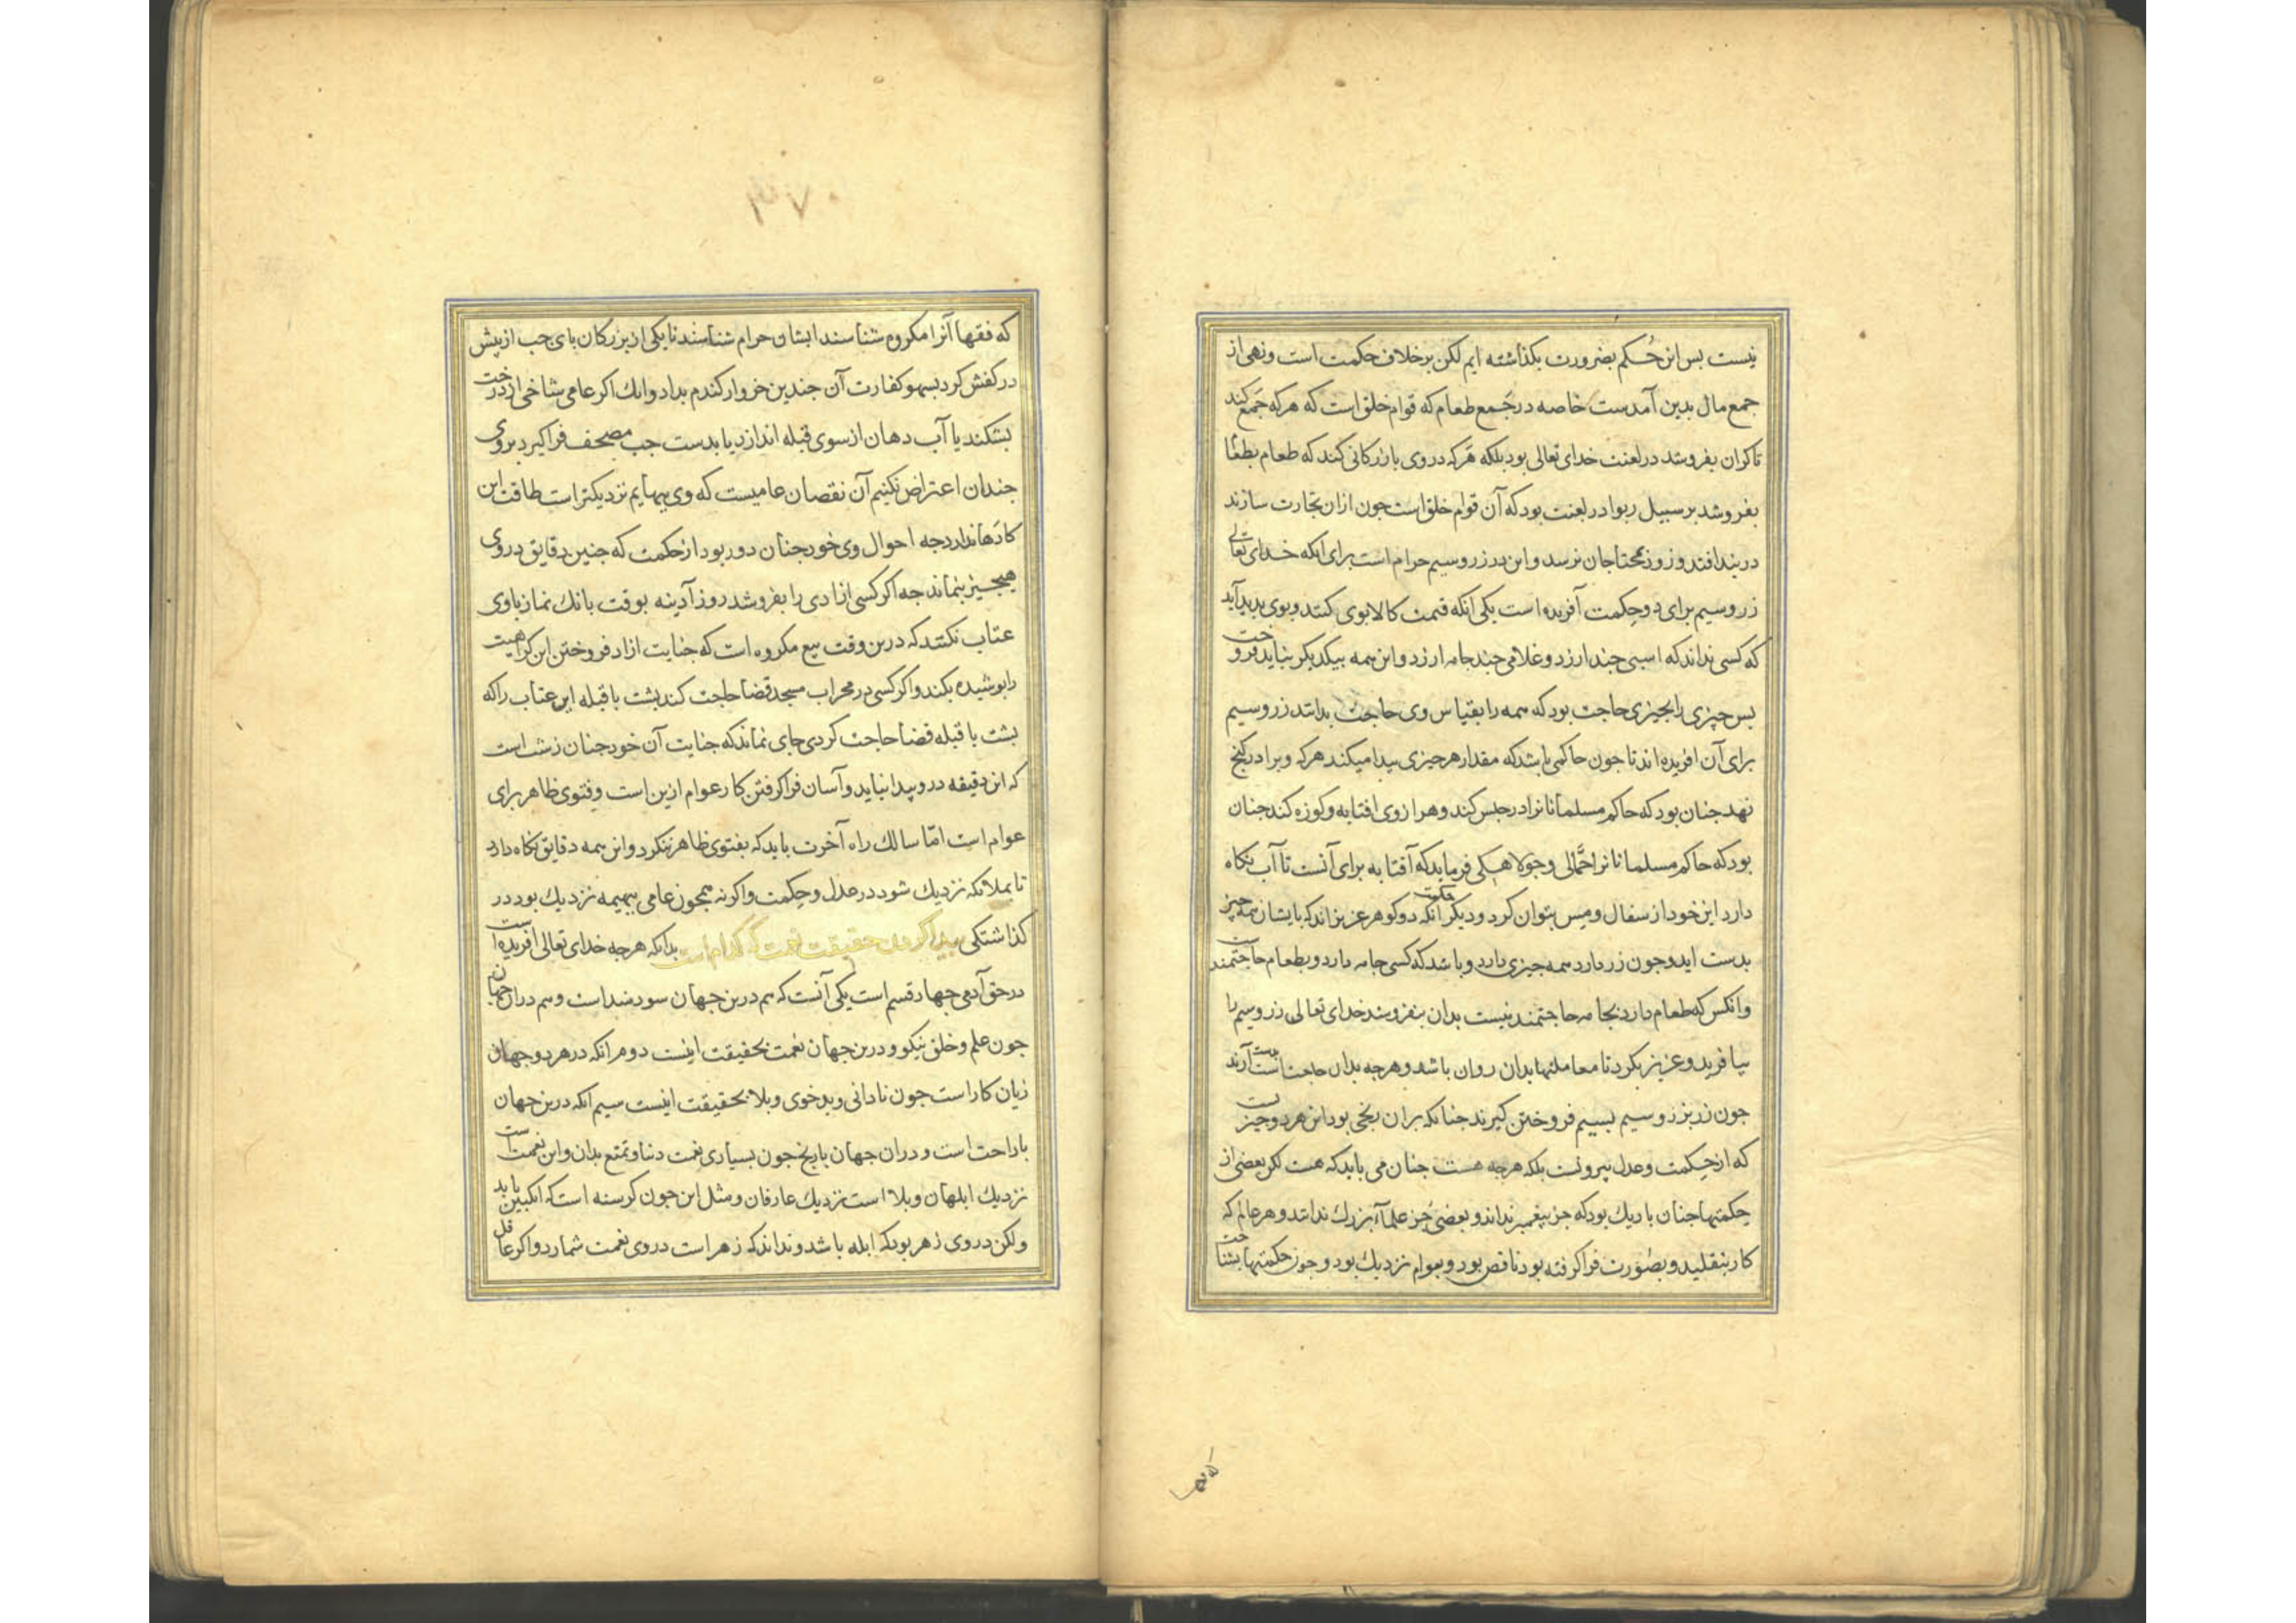 نیست بس این حُکم بضرورت بکذاشته ایم لکن برخلاف حکمت است ونهی از
جمع مال بدین آمدست خاصه در جَمع طعام که قوام خلق است که هرکه جَمع کند
تا کران بفروشد در لعنت خدای تعالی بود بلکه هرکه در وی بازرکانی کند که طعام بطعام
بفروشد بر سبیل ربوا در لعنت بود که آن قوام خلق است جون ازان تجارت سازند
در بند افتد و زود بمحتاجان نرسد و این در زر وسیم حرام است برای آنکه خدای تعالی
زر وسیم برای دو حکمت آفریده است یکی آنکه قیمت کالا بوی کنند و بوی بدید آید
که کسی نداند که اسبی جند ارزد و غلامی جند جامه ارزد و این همه بیکدیکر نباید فروخت
بس چیزی را بجیزی حاجت بود که همه را بقیاس وی حاجت بدانند زر وسیم
برای آن افریده اند تا جون حاکمی باشد که مقدار هر جیزی بیدا میکند هرکه ویرا در کنج
نهد جنان بود که حاکم مسلمانانرا در حبس کند وهر از وی افتابه و کوزه کند جنان
بود که حاکم مسلمانانرا حمّالی و جولاهکی فرماید که آفتابه برای آنست تا آب نکاه
دارد این خود از سفال و مس بتوان کرد و دیکر حکمت آنکه دو کوهر عزیزاند که بایشان همه چیز
بدست اید وجون زر دارد همه جیزی دارد و باشد که کسی جامه دارد و بطعام حاجتمندست
وانکس که طعام دارد بجامه حاجتمند نیست بدان بنفروشد خدای تعالی زر وسیم را
بیا فرید و عزیز بکرد تا معاملتها بدان روان باشد و هرجه بدان حاجت است بدست آرند
جون زر بزر و سیم بسیم فروختن کیرند جنانکه بران بخی بود این هر دو جیز
که از حکمت وعدل بیرونست بلکه هرجه هست جنان می باید که هست لکن بعضی از
حکمتها جنان باریک بود که جز بیغمبر نداند و بعضی جز علماء بزرك ندانند و هر عالم که
کار بتقلید و بصُورت فرا کرفته بود ناقص بود و بعوام نزدیك بود و جون حکمتها بشناخت
که فقها
که فقها آنرا مکروه شناسند ایشان حرام شناسند تا یکی از بزرکان بای جب از بیش
در کفش کرد بسهو کفارت آن جندین خروار کندم بداد وانك اکر عامی شاخی از درخت
بشکند یا آب دهان از سوی قبله اندازد یا بدست جب مصحف فرا کیرد بر وی
جندان اعتراض نکنیم آن نقصان عامیست که وی ببهایم نزدیکتر است طاقت این
کارها ندارد جه احوال وی خود جنان دور بود از حکمت که جنین دقایق در وی
هیچیز بنماند جه اکر کسی ازادی را بفروشد روز آدینه بوقت بانك نماز باوی
عتاب نکنند که درین وقت بیع مکروه است که جنایت ازاد فروختن این کراهیت
را بوشیده بکند و اکر کسی در محراب مسجد قضا حاجت کند بشت با قبله این عتاب را که
بشت با قبله قضا حاجت کردی جای نماند که جنایت آن خود جنان زشت است
که این دقیقه درو بیدا نیاید و آسان فرا کرفتن کار عوام ازین است و فتوی ظاهر برای
عوام است امّا سالك راه آخرت باید که بفتوی ظاهر ننکرد و این همه دقایق نکاه دارد
تا بملائکه نزدیك شود در عدل و حکمت و اکرنه همجون عامی ببهیمه نزدیك بود در
کذاشتکی بیدا کردن حقیقت نعمت که کدام است بدانکه هرجه خدای تعالی افریده است
در حق آدمی جهار قسم است یکی آنست که هم درین جهان سودمند است و هم دران جهان
جون علم و خلق نیکو و درین جهان نعمت بحقیقت اینست دوم انکه در هر دو جهان
زیان کار است جون نادانی و بدخوی و بلا بحقیقت اینست سیم انکه درین جهان
با راحت است و دران جهان با رنج جون بسیاری نعمت دنیا و تمتع بدان و این نعمت است
نزدیك ابلهان و بلا است نزدیك عارفان و مثل این جون کرسنه است که انکبین یابد
ولکن در وی زهر بود که ابله باشد و نداند که زهر است در وی نعمت شمارد و اکر عاقل